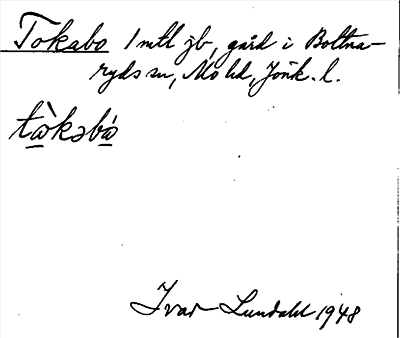 Tokabo 1 mtl jb, gård i Boltna-
ryds sn, Mo hd, Jönk. l.
tὼkəbώ
Ivar Lundahl 1948